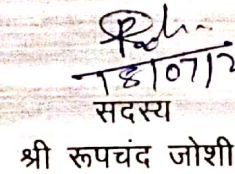 18/07/2
सदस्य
श्री रूपचंद जोशी